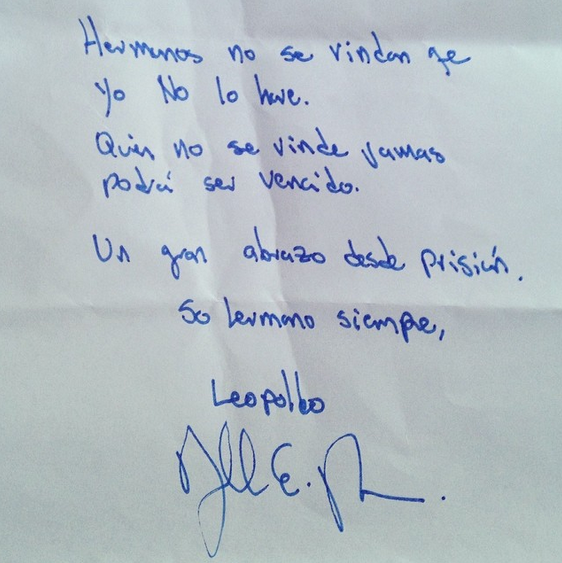 Hermanos no se rindan qe
yo No lo hare.
Quien no se rinde jamas
podrá ser vencido.
Un gran abrazo desde prisión.
Su hermano siempre,
Leopoldo